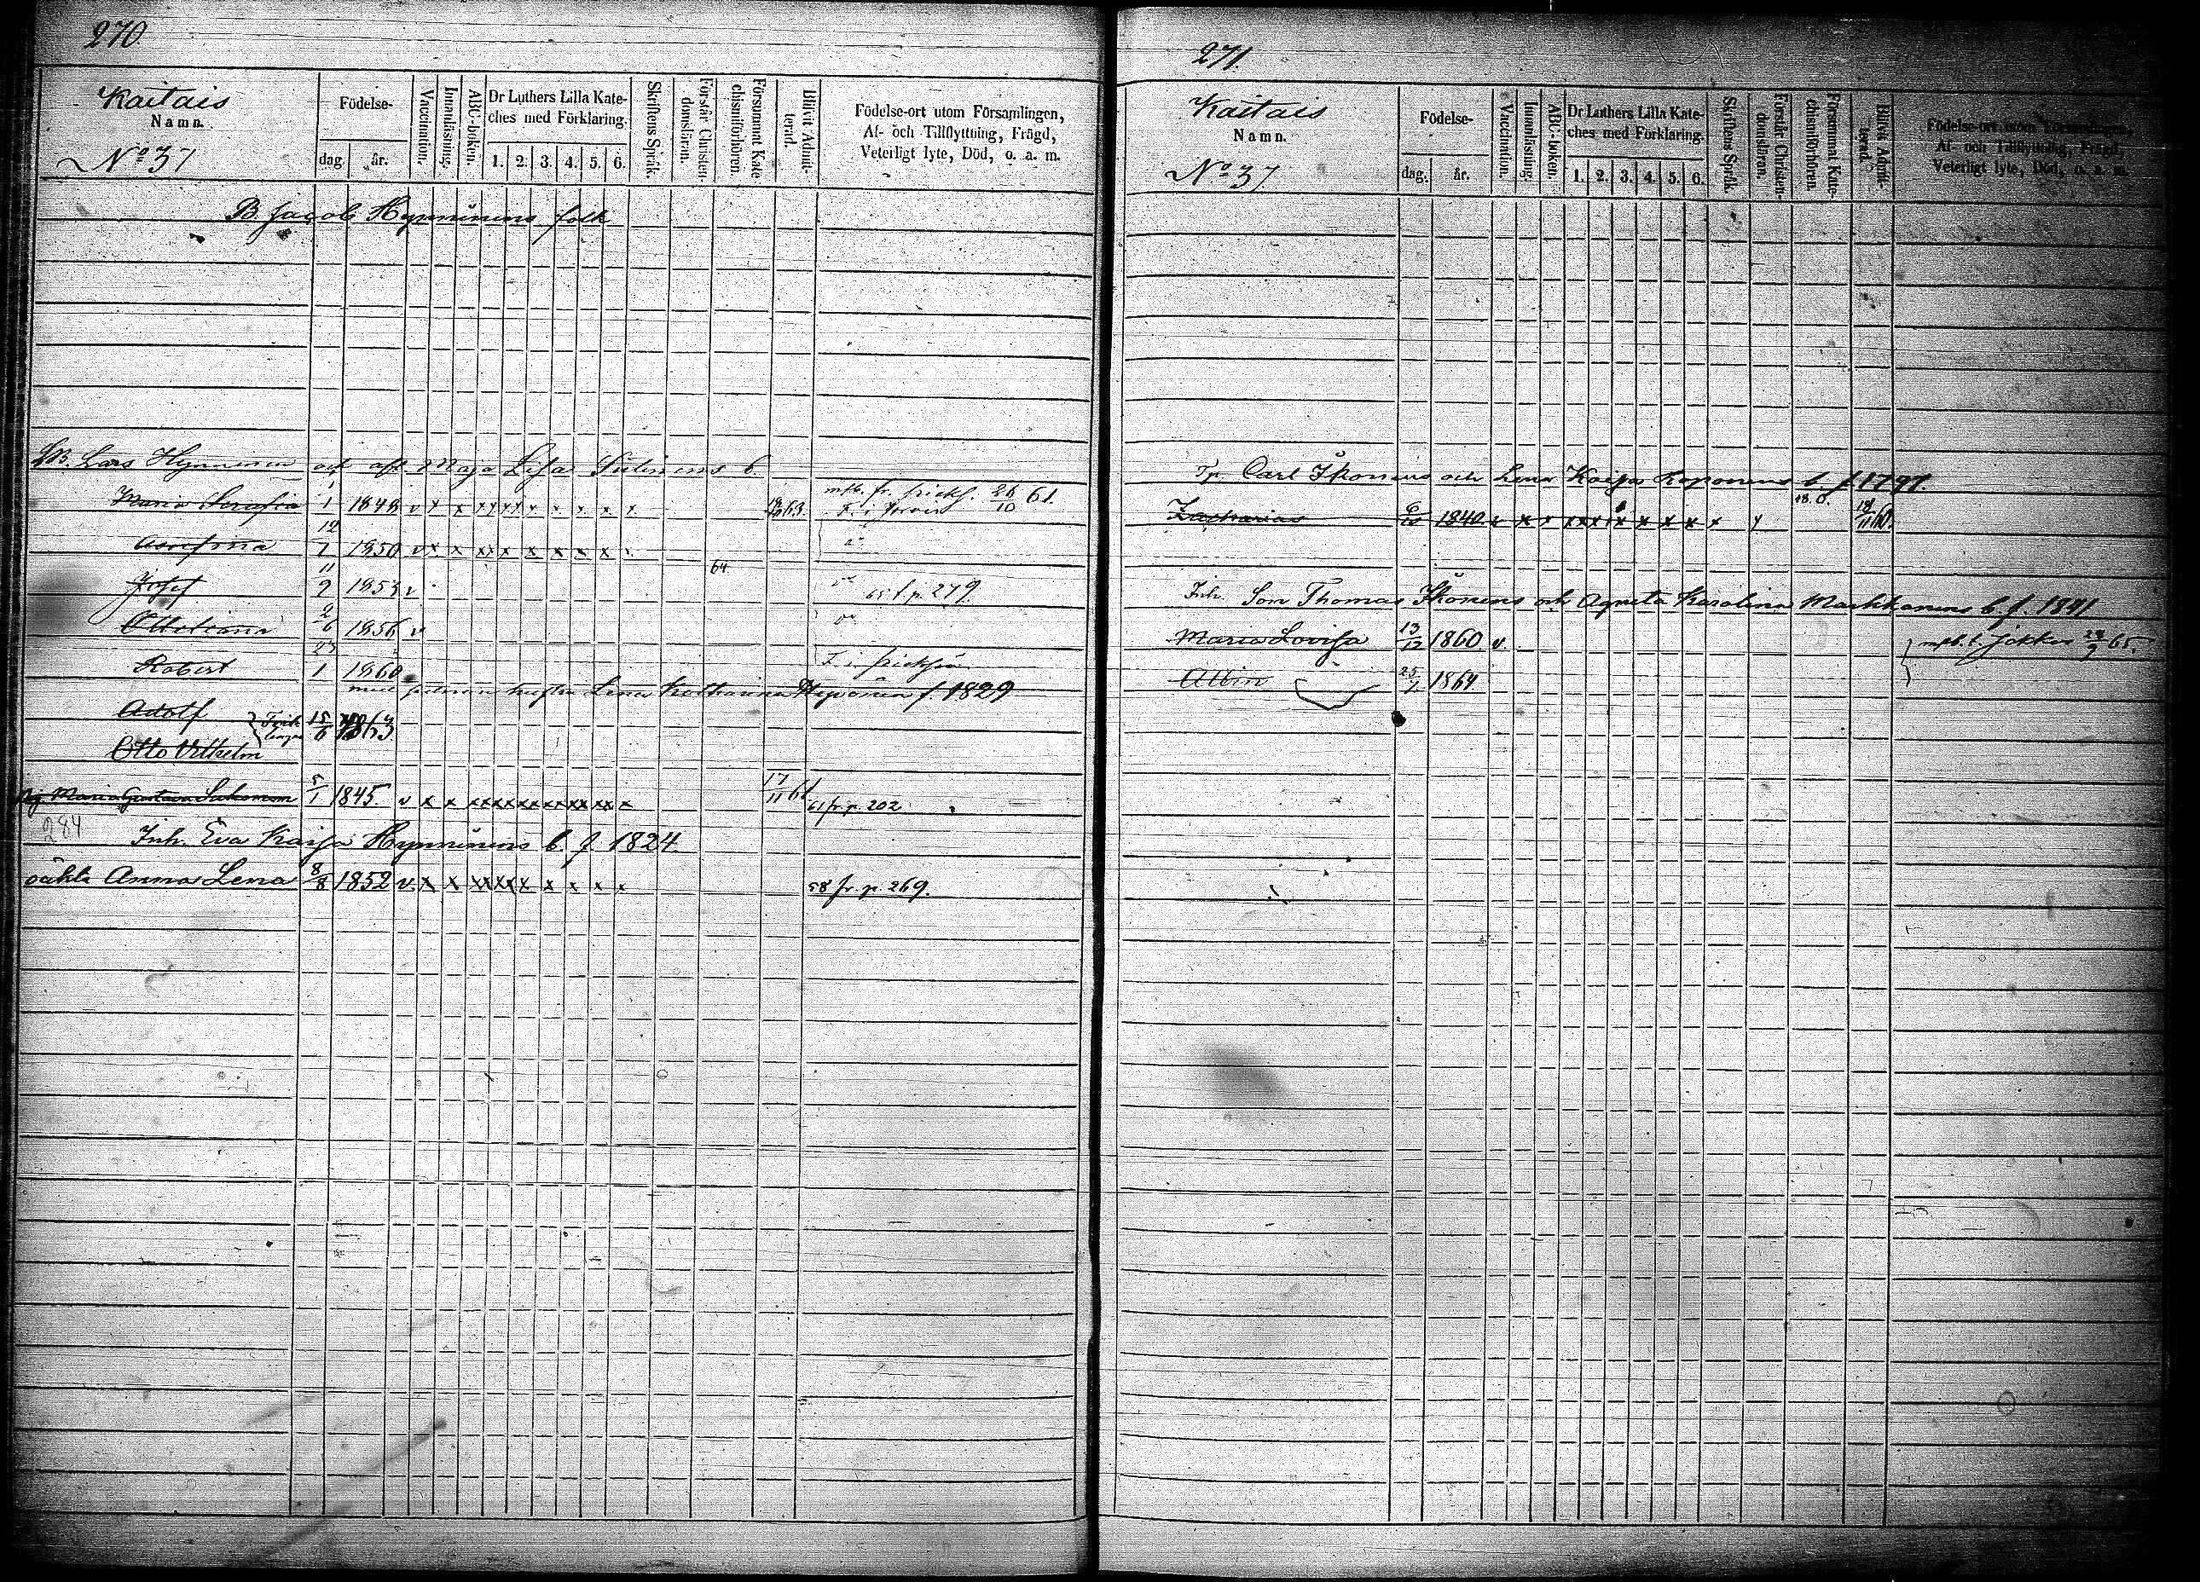 270.
Kaitais
Namn.
No 37
Födelse-
dag. år.
Vaccination.
Innanläsning.
ABC-boken.
Dr Luthers Lilla Kate-
ches med Förklaring.
1. 2. 3. 4. 5. 6.
Skriftens Språk.
Förstår Christen-
domsläran.
Försummat Kate-
chismiförhören.
Blivit Admit-
terad.
Födelse-ort utom Församlingen,
Af- och Tillflyttning, Frägd,
Veterligt lyte, Död, o. a. m.
B. Jacob Hynninens folk
Lars Hynninen och afl Maja Lisa b.
Maria Serafia 1/1 1848 v x x x x x x x x x x x 63. 26/10 61.
12/7 1850 v x x x x x x x x x x
64
Josef 11/9 1853 v 65 f. p. 279.
2/6 1856 v
Robert 23/1 1860
med hustru Lena Katharina f. 1829
Adolf 15/6 1863
Otto Vilhelm
Maria Gustava 5/1 1845. v x x x x x x x x x x x 17/11 61 61 fr. p. 202
284
Inh. Eva Kaisa Hynninens b. f 1824.
oäkta Anna Lena 8/8 1852 v x x x x x x x x x x 58 fr. p. 269.
271.
Kaitais
Namn.
No 37.
Födelse-
dag. år.
Vaccination.
Innanläsning.
ABC-boken.
Dr Luthers Lilla Kate-
ches med Förklaring.
1. 2. 3. 4. 5. 6.
Skriftens Språk.
Förstår Christen-
domsläran.
Försummat Kate-
chismiförhören.
Blivit Admit-
terad.
Födelse-ort utom Församlingen,
Af- och Tillflyttning, Frägd,
Veterligt lyte, Död, o. a. m.
Carl Ikonens och Lena Kaisa Koponens b. f. 1797.
Zacharias 1840 x x x x x x x x x x
Inh. Son Thomas Ikonens och Agneta Karolina Markkanens b. f. 1841
Maria Lovisa 13/12 1860 v.
Albin 25/7 1864